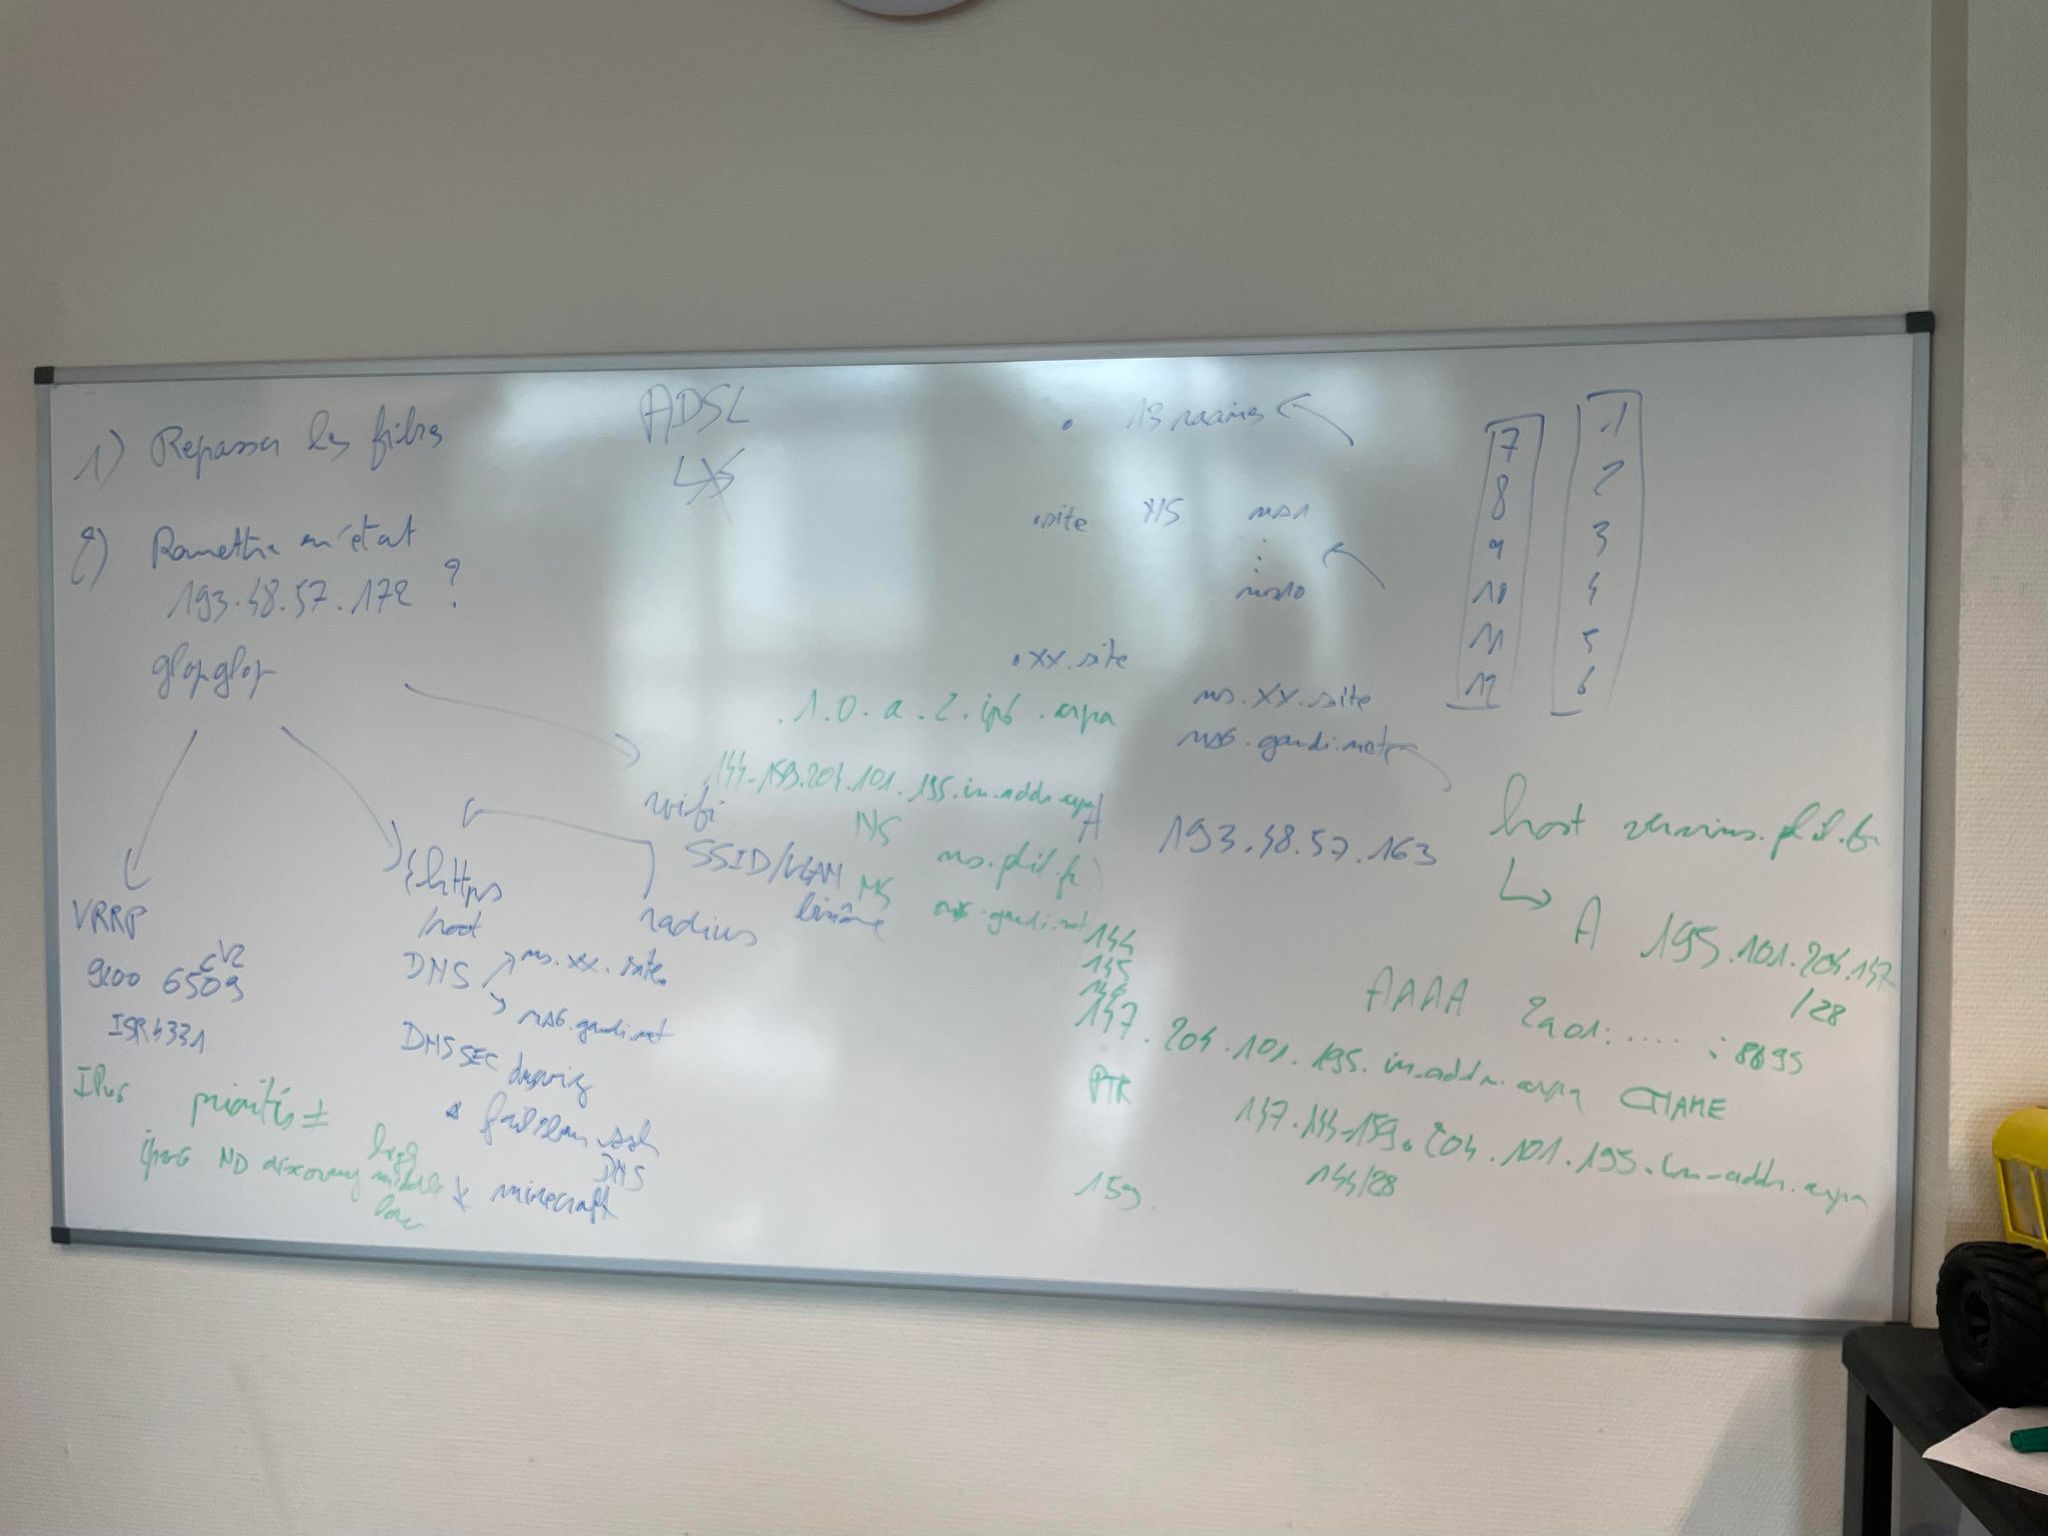 1) Repasser les fibres
2) Remettre en état
193.48.57.172 ?
glopglop
ADSL
VRRP
9200 6509 V2
ISR4331
IPv6 priorités ±
ipv6 ND discovery high
middle
low
https
/root
DNS ns.xx.site
ns6.gandi.net
DNSSEC
ssh
DNS
* minecraft
wifi
SSID/VLAN
radius
binôme
. 13 racines
.site NS ns1
:
ns10
.xx.site
ns.xx.site
ns6.gandi.net
A 193.48.57.163
7
8
9
10
11
12
1
2
3
4
5
6
.1.0.a.2.ip6.arpa
144-159.204.101.195.in-addr.arpa
NS ns.plil.fr
NS ns6.gandi.net
host plil.fr
A 195.101.204.147
/28
AAAA 2a01:..... :8695
144
145
146
147.204.101.195.in-addr.arpa CNAME
PTR 147.144-159.204.101.195.in-addr.arpa
144/28
159.